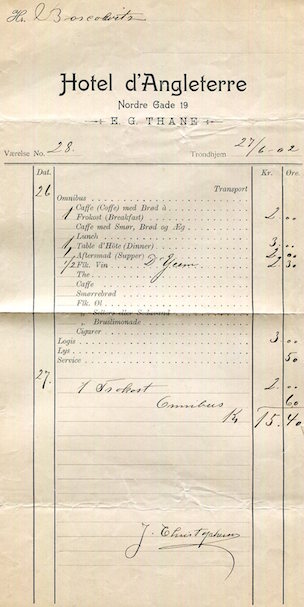 Hr. Boscowitz
Hotel d'Angleterre
Nordre Gade 19
E. G. THANE
Værelse No. 28. Trondhjem 27/6-02
Dat. Kr. Øre.
26 Transport
Omnibus
1 Caffe (Coffe) med Brød à
Frokost (Breakfast) 2 "
Caffe med Smør, Brød og Æg
Lunch
1 Table d'Hôte (Dinner) 3 "
1 Aftensmad (Supper) 2 00
1/2 Flk. Vin D'Yquem 2 30
The
Caffe
Smørrebrød
Flk. Øl
" Selters eller Sodavand
" Bruslimonade
Cigarer
Logis 3 00
Lys
Service 50
27. 1 Frokost 2 00
Omnibus 60
Kr 15.40